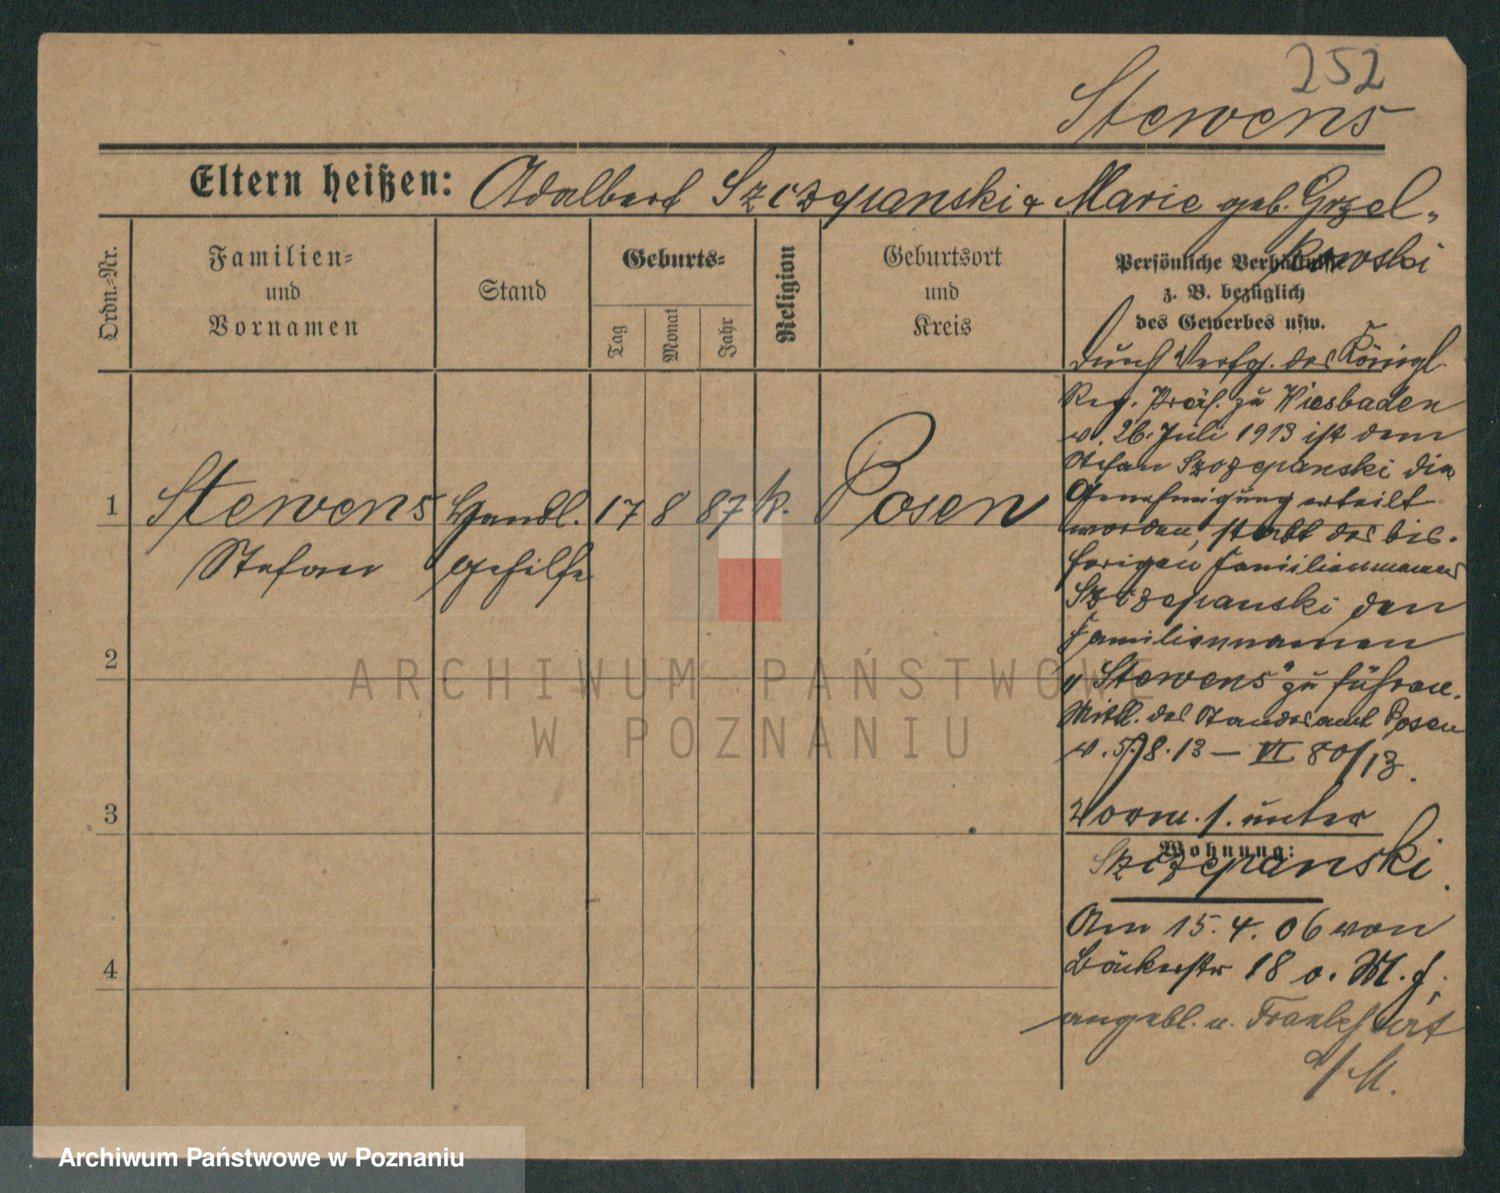 252
Stewens
Eltern heißen: Adalbert Szczepanski & Marie geb. Grzel-
kowski
Ordn.-Nr.
Familien-
und
Vornamen
Stand
Geburts-
Tag
Monat
Jahr
Religion
Geburtsort
und
Kreis
Persönliche Verhältnisse
z. B. bezüglich
des Gewerbes usw.
1 Stewens Handl. 17 8 87 k. Posen
Stefan gehilfe
2
3
4
Durch Verfg. des Königl.
Reg. Präs. zu Wiesbaden
v. 26. Juli 1913 ist dem
Stefan Szczepanski die
Genehmigung erteilt
worden, statt des bis-
herigen Familiennamens
Szczepanski den
Familiennamen
„Stewens" zu führen.
Mittl. des Standesamt Posen
v. 5./8. 13 — VI 80/13.
Vorm. s. unter
Wohnung:
Szczepanski.
Am 15. 4. 06 von
Bäckerstr 18 o. M. f.
angebl. n. Frankfurt
a/M.
ARCHIWUM PAŃSTWOWE
W POZNANIU
Archiwum Państwowe w Poznaniu